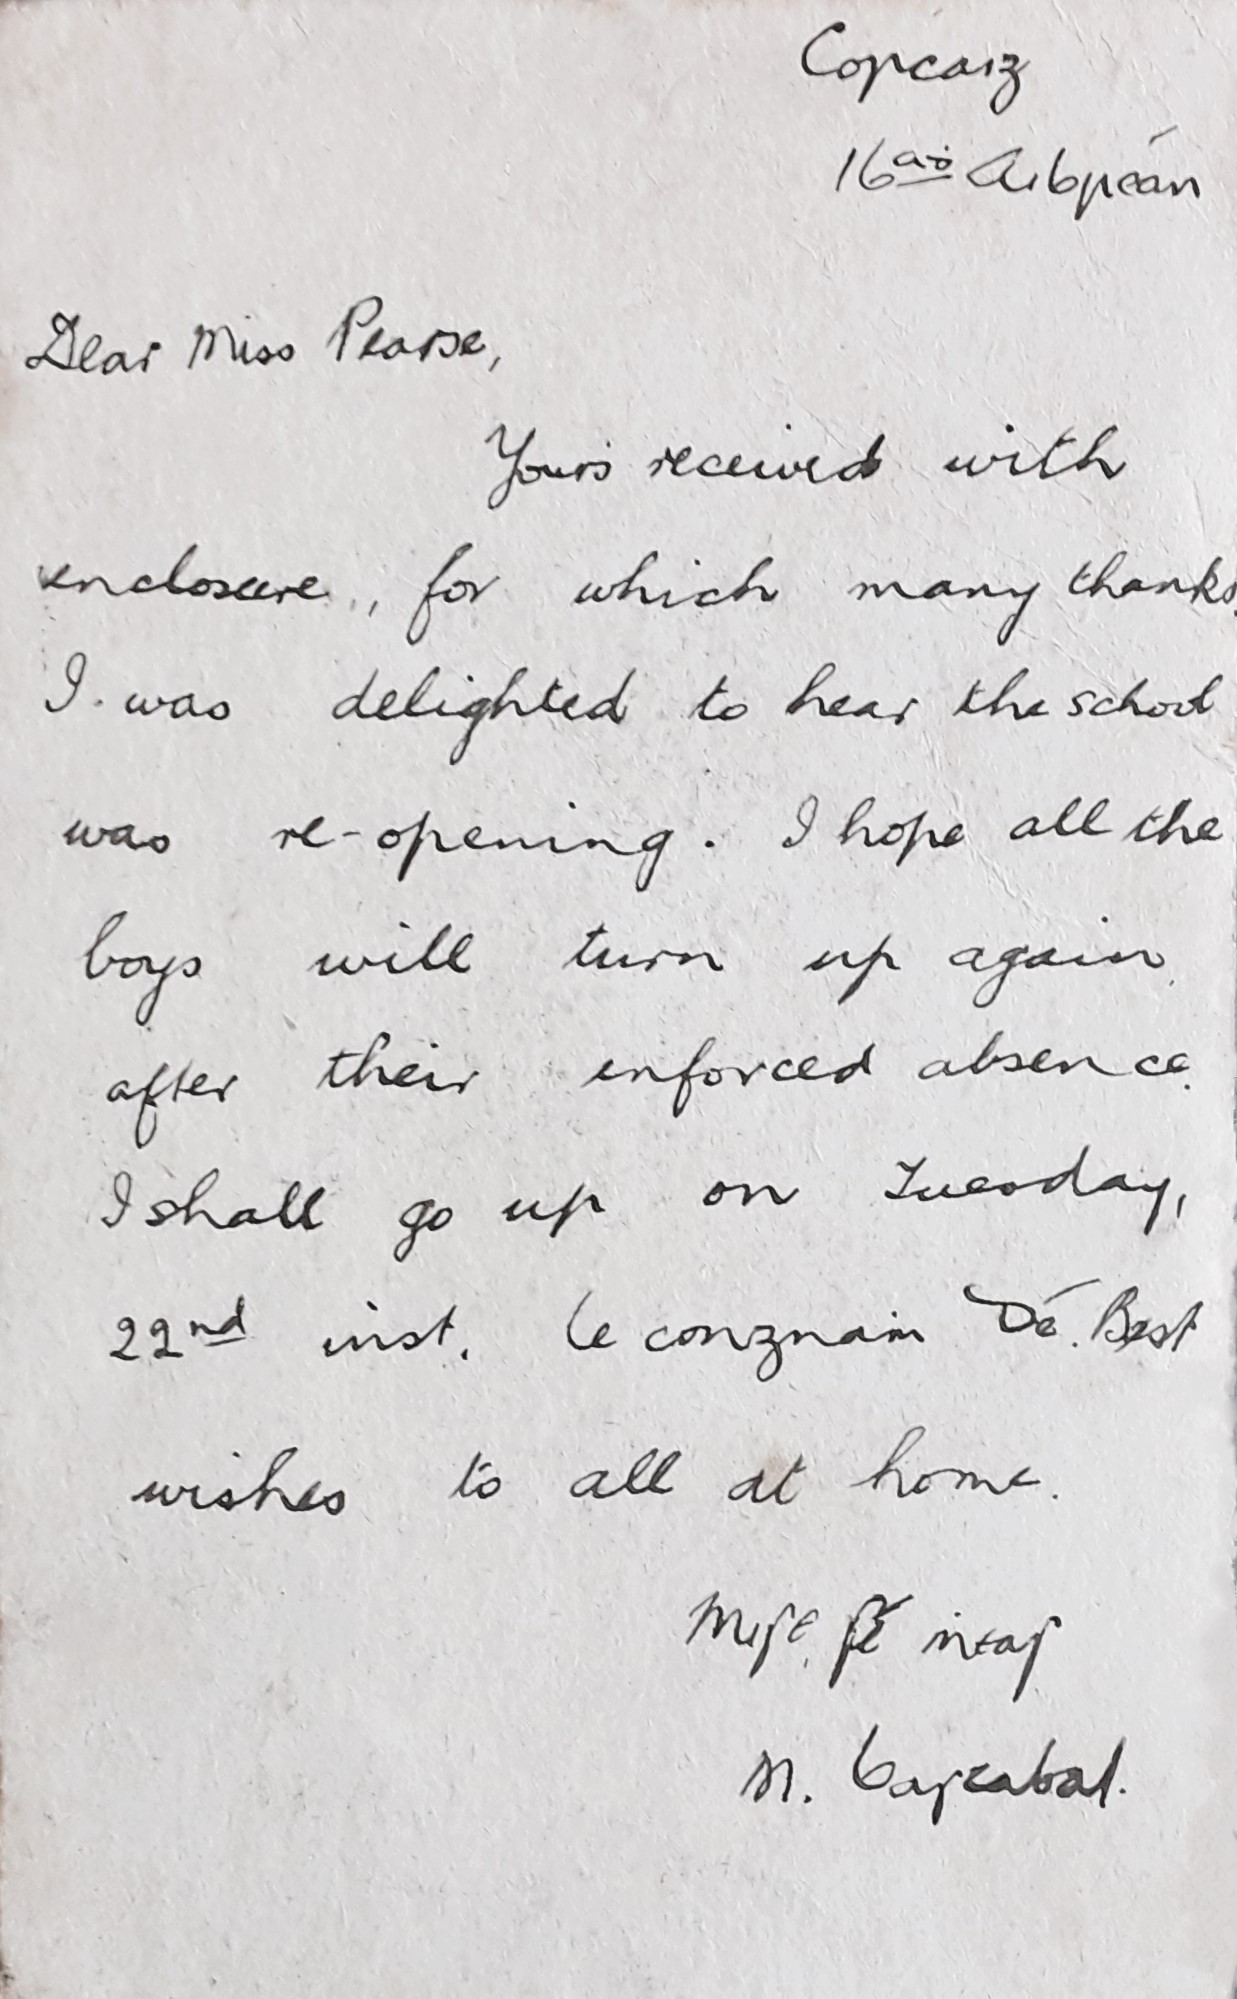 Corcaig
16aḋ Aibreán
Dear Miss Pearse,
Yours received with
enclosure, for which many thanks.
I was delighted to hear the school
was re-opening. I hope all the
boys will turn up again
after their enforced absence.
I shall go up on Tuesday,
22nd inst. le congnaim Dé. Best
wishes to all at home.
Mise,
M.